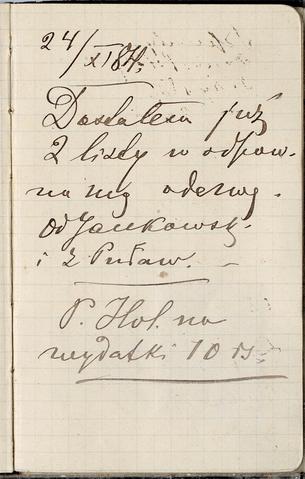 24/XI 84.
Dostałem już
2 listy w odpow.
na mą odezwę.
Od Jankowsk.
i z Puław. —
P. Hol. na
wydatki 10 rs